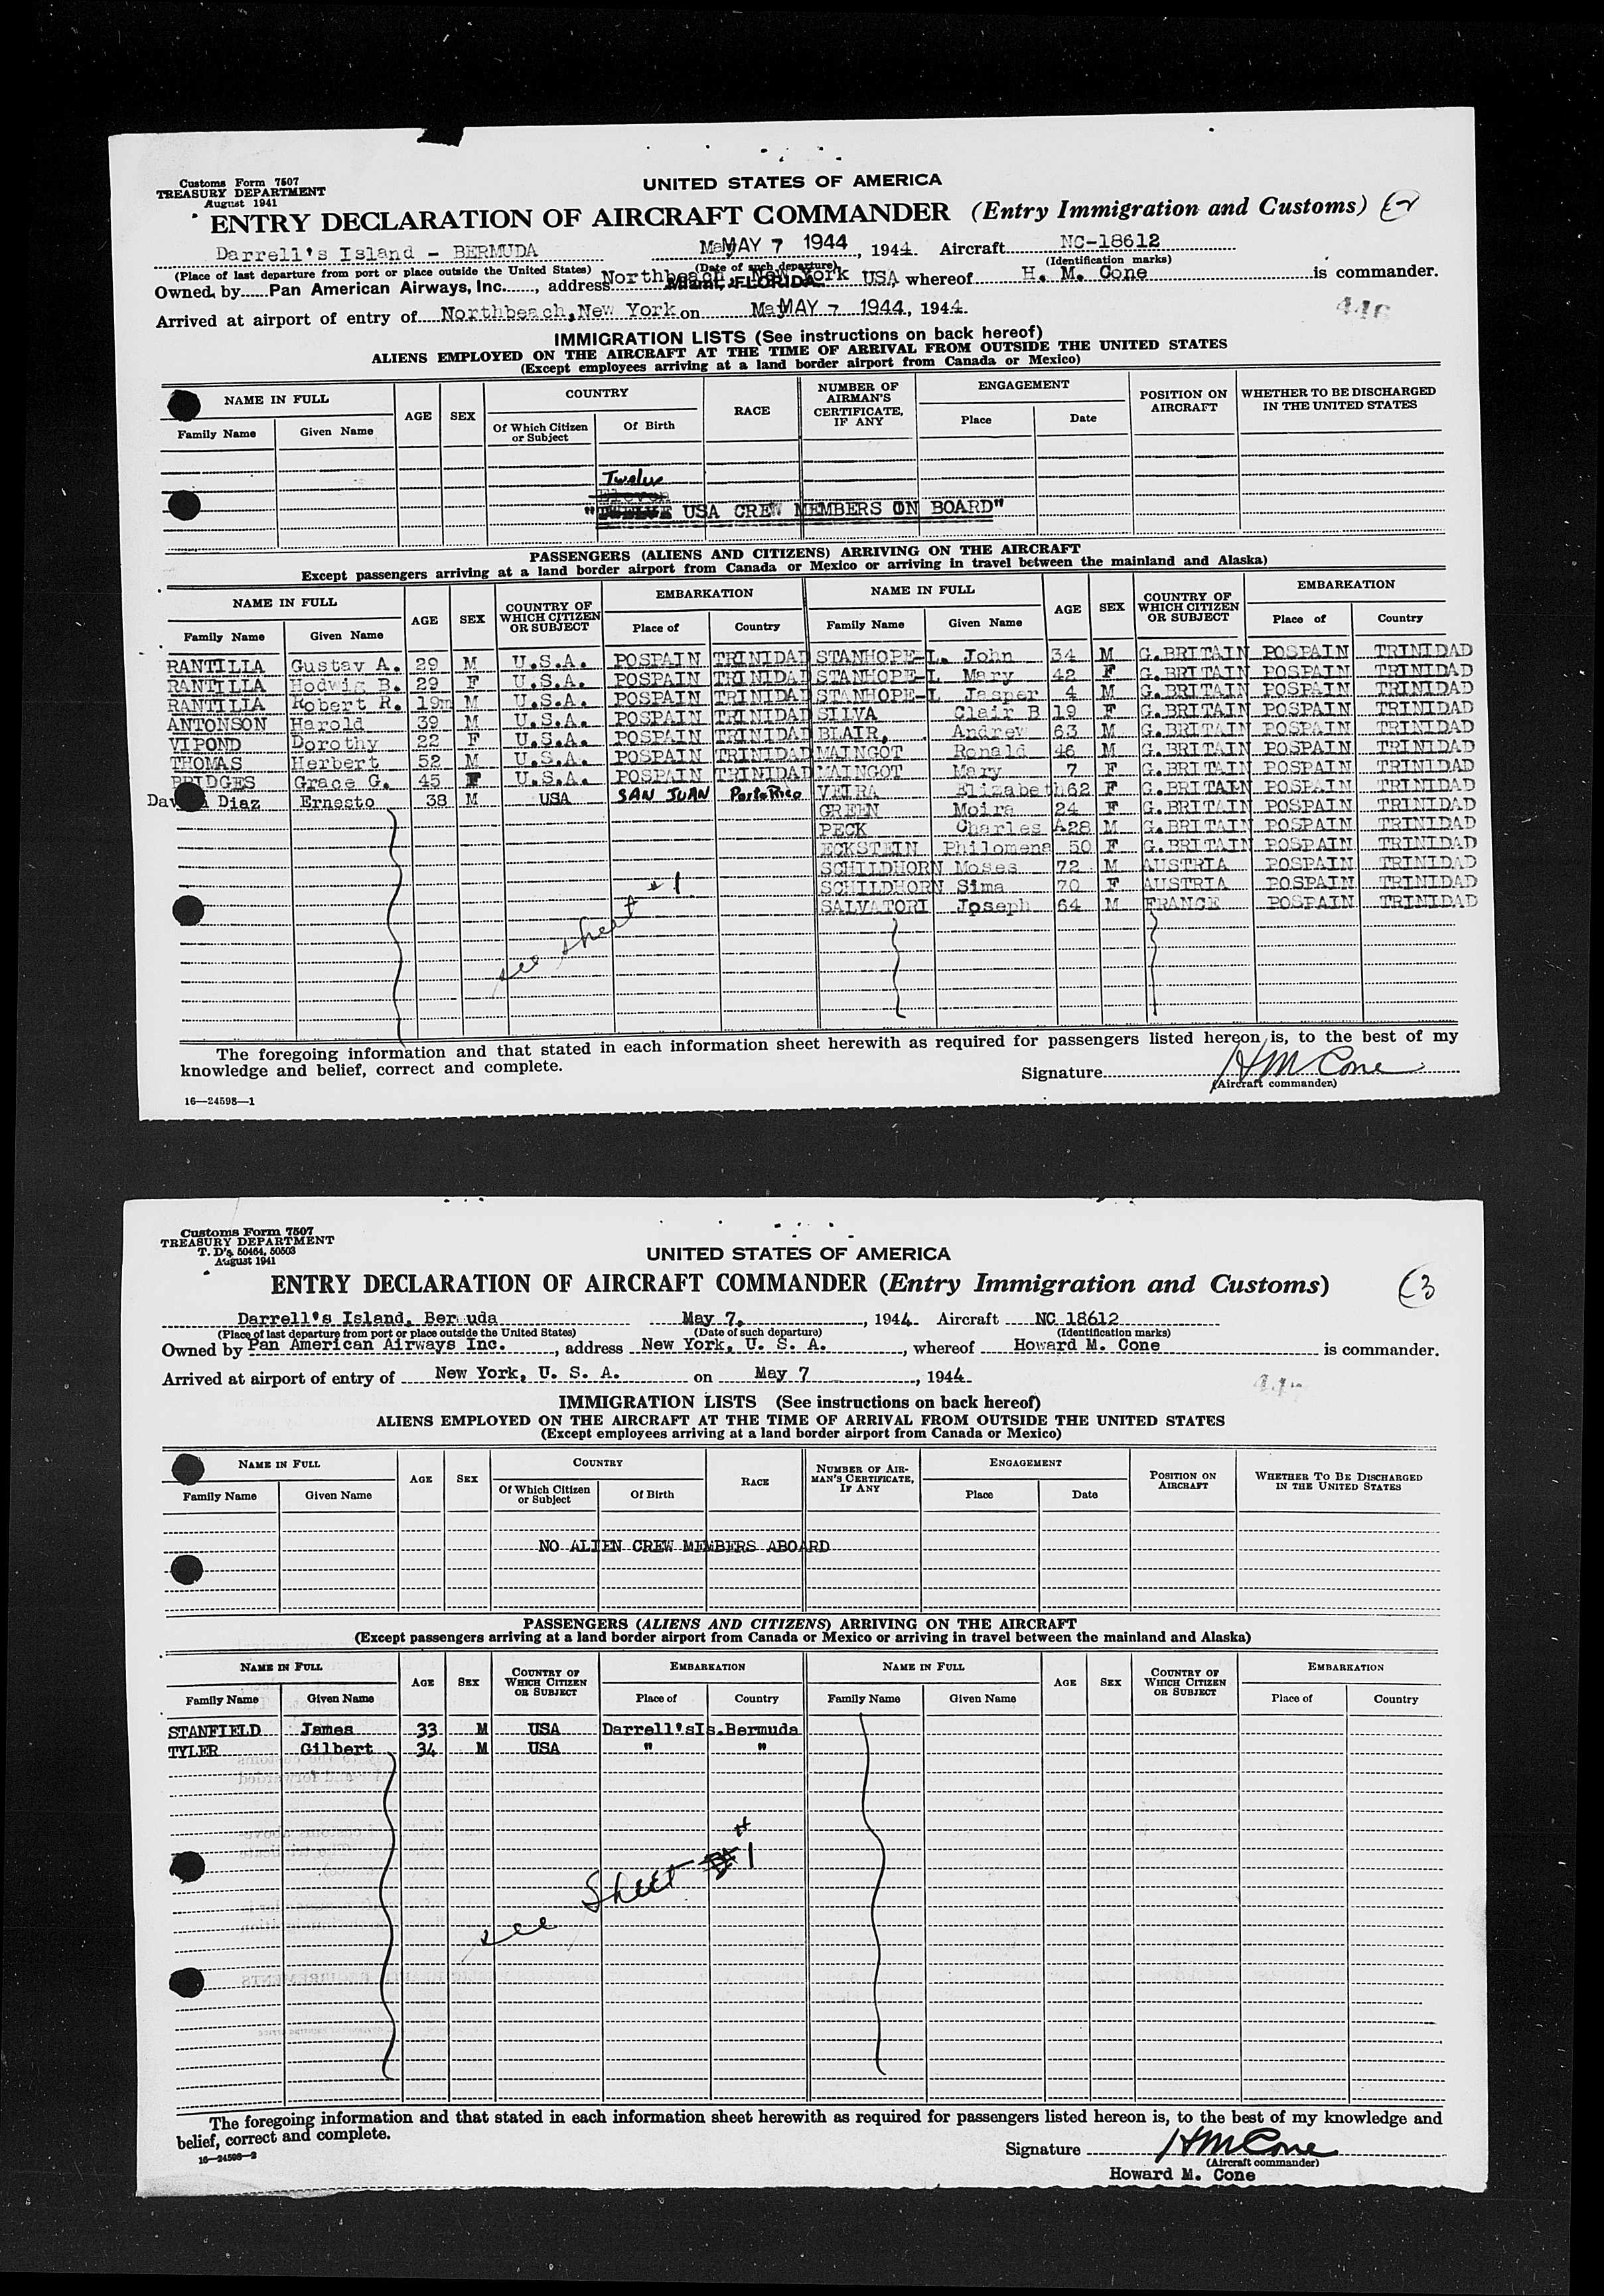 Customs Form 7507
TREASURY DEPARTMENT
August 1941
UNITED STATES OF AMERICA
ENTRY DECLARATION OF AIRCRAFT COMMANDER (Entry Immigration and Customs) 2
Darrell's Island - BERMUDA MAY 7 1944, 1944. Aircraft NC-18612
(Place of last departure from port or place outside the United States) (Date of such departure) (Identification marks)
Owned by Pan American Airways, Inc., address Northbeach, New York USA whereof H. M. Cone is commander.
Miami, FLORIDA
Arrived at airport of entry of Northbeach, New York on MAY 7 1944, 1944.
446
IMMIGRATION LISTS (See instructions on back hereof)
ALIENS EMPLOYED ON THE AIRCRAFT AT THE TIME OF ARRIVAL FROM OUTSIDE THE UNITED STATES
(Except employees arriving at a land border airport from Canada or Mexico)
NAME IN FULL AGE SEX COUNTRY RACE NUMBER OF AIRMAN'S CERTIFICATE, IF ANY ENGAGEMENT POSITION ON AIRCRAFT WHETHER TO BE DISCHARGED IN THE UNITED STATES
Family Name Given Name Of Which Citizen or Subject Of Birth Place Date
Twelve
Eleven
"TWELVE USA CREW MEMBERS ON BOARD"
PASSENGERS (ALIENS AND CITIZENS) ARRIVING ON THE AIRCRAFT
Except passengers arriving at a land border airport from Canada or Mexico or arriving in travel between the mainland and Alaska)
NAME IN FULL AGE SEX COUNTRY OF WHICH CITIZEN OR SUBJECT EMBARKATION NAME IN FULL AGE SEX COUNTRY OF WHICH CITIZEN OR SUBJECT EMBARKATION
Family Name Given Name Place of Country Family Name Given Name Place of Country
RANTILLA Gustav A. 29 M U.S.A. POSPAIN TRINIDAD STANHOPE-L. John 34 M G.BRITAIN POSPAIN TRINIDAD
RANTILLA Hedwig B. 29 F U.S.A. POSPAIN TRINIDAD STANHOPE-L Mary 42 F G.BRITAIN POSPAIN TRINIDAD
RANTILLA Robert R. 19m M U.S.A. POSPAIN TRINIDAD STANHOPE-L Jasper 4 M G.BRITAIN POSPAIN TRINIDAD
ANTONSON Harold 39 M U.S.A. POSPAIN TRINIDAD SILVA Clair B 19 F G.BRITAIN POSPAIN TRINIDAD
VIPOND Dorothy 22 F U.S.A. POSPAIN TRINIDAD BLAIR, Andrew 63 M G.BRITAIN POSPAIN TRINIDAD
THOMAS Herbert 52 M U.S.A. POSPAIN TRINIDAD MAINGOT Ronald 46 M G.BRITAIN POSPAIN TRINIDAD
BRIDGES Grace G. 45 F U.S.A. POSPAIN TRINIDAD MAINGOT Mary 7 F G.BRITAIN POSPAIN TRINIDAD
Diaz Ernesto 38 M USA SAN JUAN PortoRico VEIRA Elizabeth 62 F G.BRITAIN POSPAIN TRINIDAD
GREEN Moira 24 F G.BRITAIN POSPAIN TRINIDAD
PECK Charles A 28 M G.BRITAIN POSPAIN TRINIDAD
ECKSTEIN Philomena 50 F G.BRITAIN POSPAIN TRINIDAD
SCHILDHORN Moses 72 M AUSTRIA POSPAIN TRINIDAD
SCHILDHORN Sima 70 F AUSTRIA POSPAIN TRINIDAD
SALVATORI Joseph 64 M FRANCE POSPAIN TRINIDAD
see sheet # 1
The foregoing information and that stated in each information sheet herewith as required for passengers listed hereon is, to the best of my
knowledge and belief, correct and complete.
Signature HM Cone
(Aircraft commander)
16—24598—1
Customs Form 7507
TREASURY DEPARTMENT
T. D's. 50464, 50503
August 1941
UNITED STATES OF AMERICA
ENTRY DECLARATION OF AIRCRAFT COMMANDER (Entry Immigration and Customs) 3
Darrell's Island, Bermuda May 7, 1944 Aircraft NC 18612
(Place of last departure from port or place outside the United States) (Date of such departure) (Identification marks)
Owned by Pan American Airways Inc., address New York, U. S. A., whereof Howard M. Cone is commander.
Arrived at airport of entry of New York, U. S. A. on May 7, 1944
IMMIGRATION LISTS (See instructions on back hereof)
ALIENS EMPLOYED ON THE AIRCRAFT AT THE TIME OF ARRIVAL FROM OUTSIDE THE UNITED STATES
(Except employees arriving at a land border airport from Canada or Mexico)
NAME IN FULL AGE SEX COUNTRY RACE NUMBER OF AIRMAN'S CERTIFICATE, IF ANY ENGAGEMENT POSITION ON AIRCRAFT WHETHER TO BE DISCHARGED IN THE UNITED STATES
Family Name Given Name Of Which Citizen or Subject Of Birth Place Date
NO ALIEN CREW MEMBERS ABOARD
PASSENGERS (ALIENS AND CITIZENS) ARRIVING ON THE AIRCRAFT
(Except passengers arriving at a land border airport from Canada or Mexico or arriving in travel between the mainland and Alaska)
NAME IN FULL AGE SEX COUNTRY OF WHICH CITIZEN OR SUBJECT EMBARKATION NAME IN FULL AGE SEX COUNTRY OF WHICH CITIZEN OR SUBJECT EMBARKATION
Family Name Given Name Place of Country Family Name Given Name Place of Country
STANFIELD James 33 M USA Darrell'sIs.Bermuda
TYLER Gilbert 34 M USA " "
see Sheet # 1
The foregoing information and that stated in each information sheet herewith as required for passengers listed hereon is, to the best of my knowledge and
belief, correct and complete.
Signature HM Cone
(Aircraft commander)
Howard M. Cone
16—24598—2